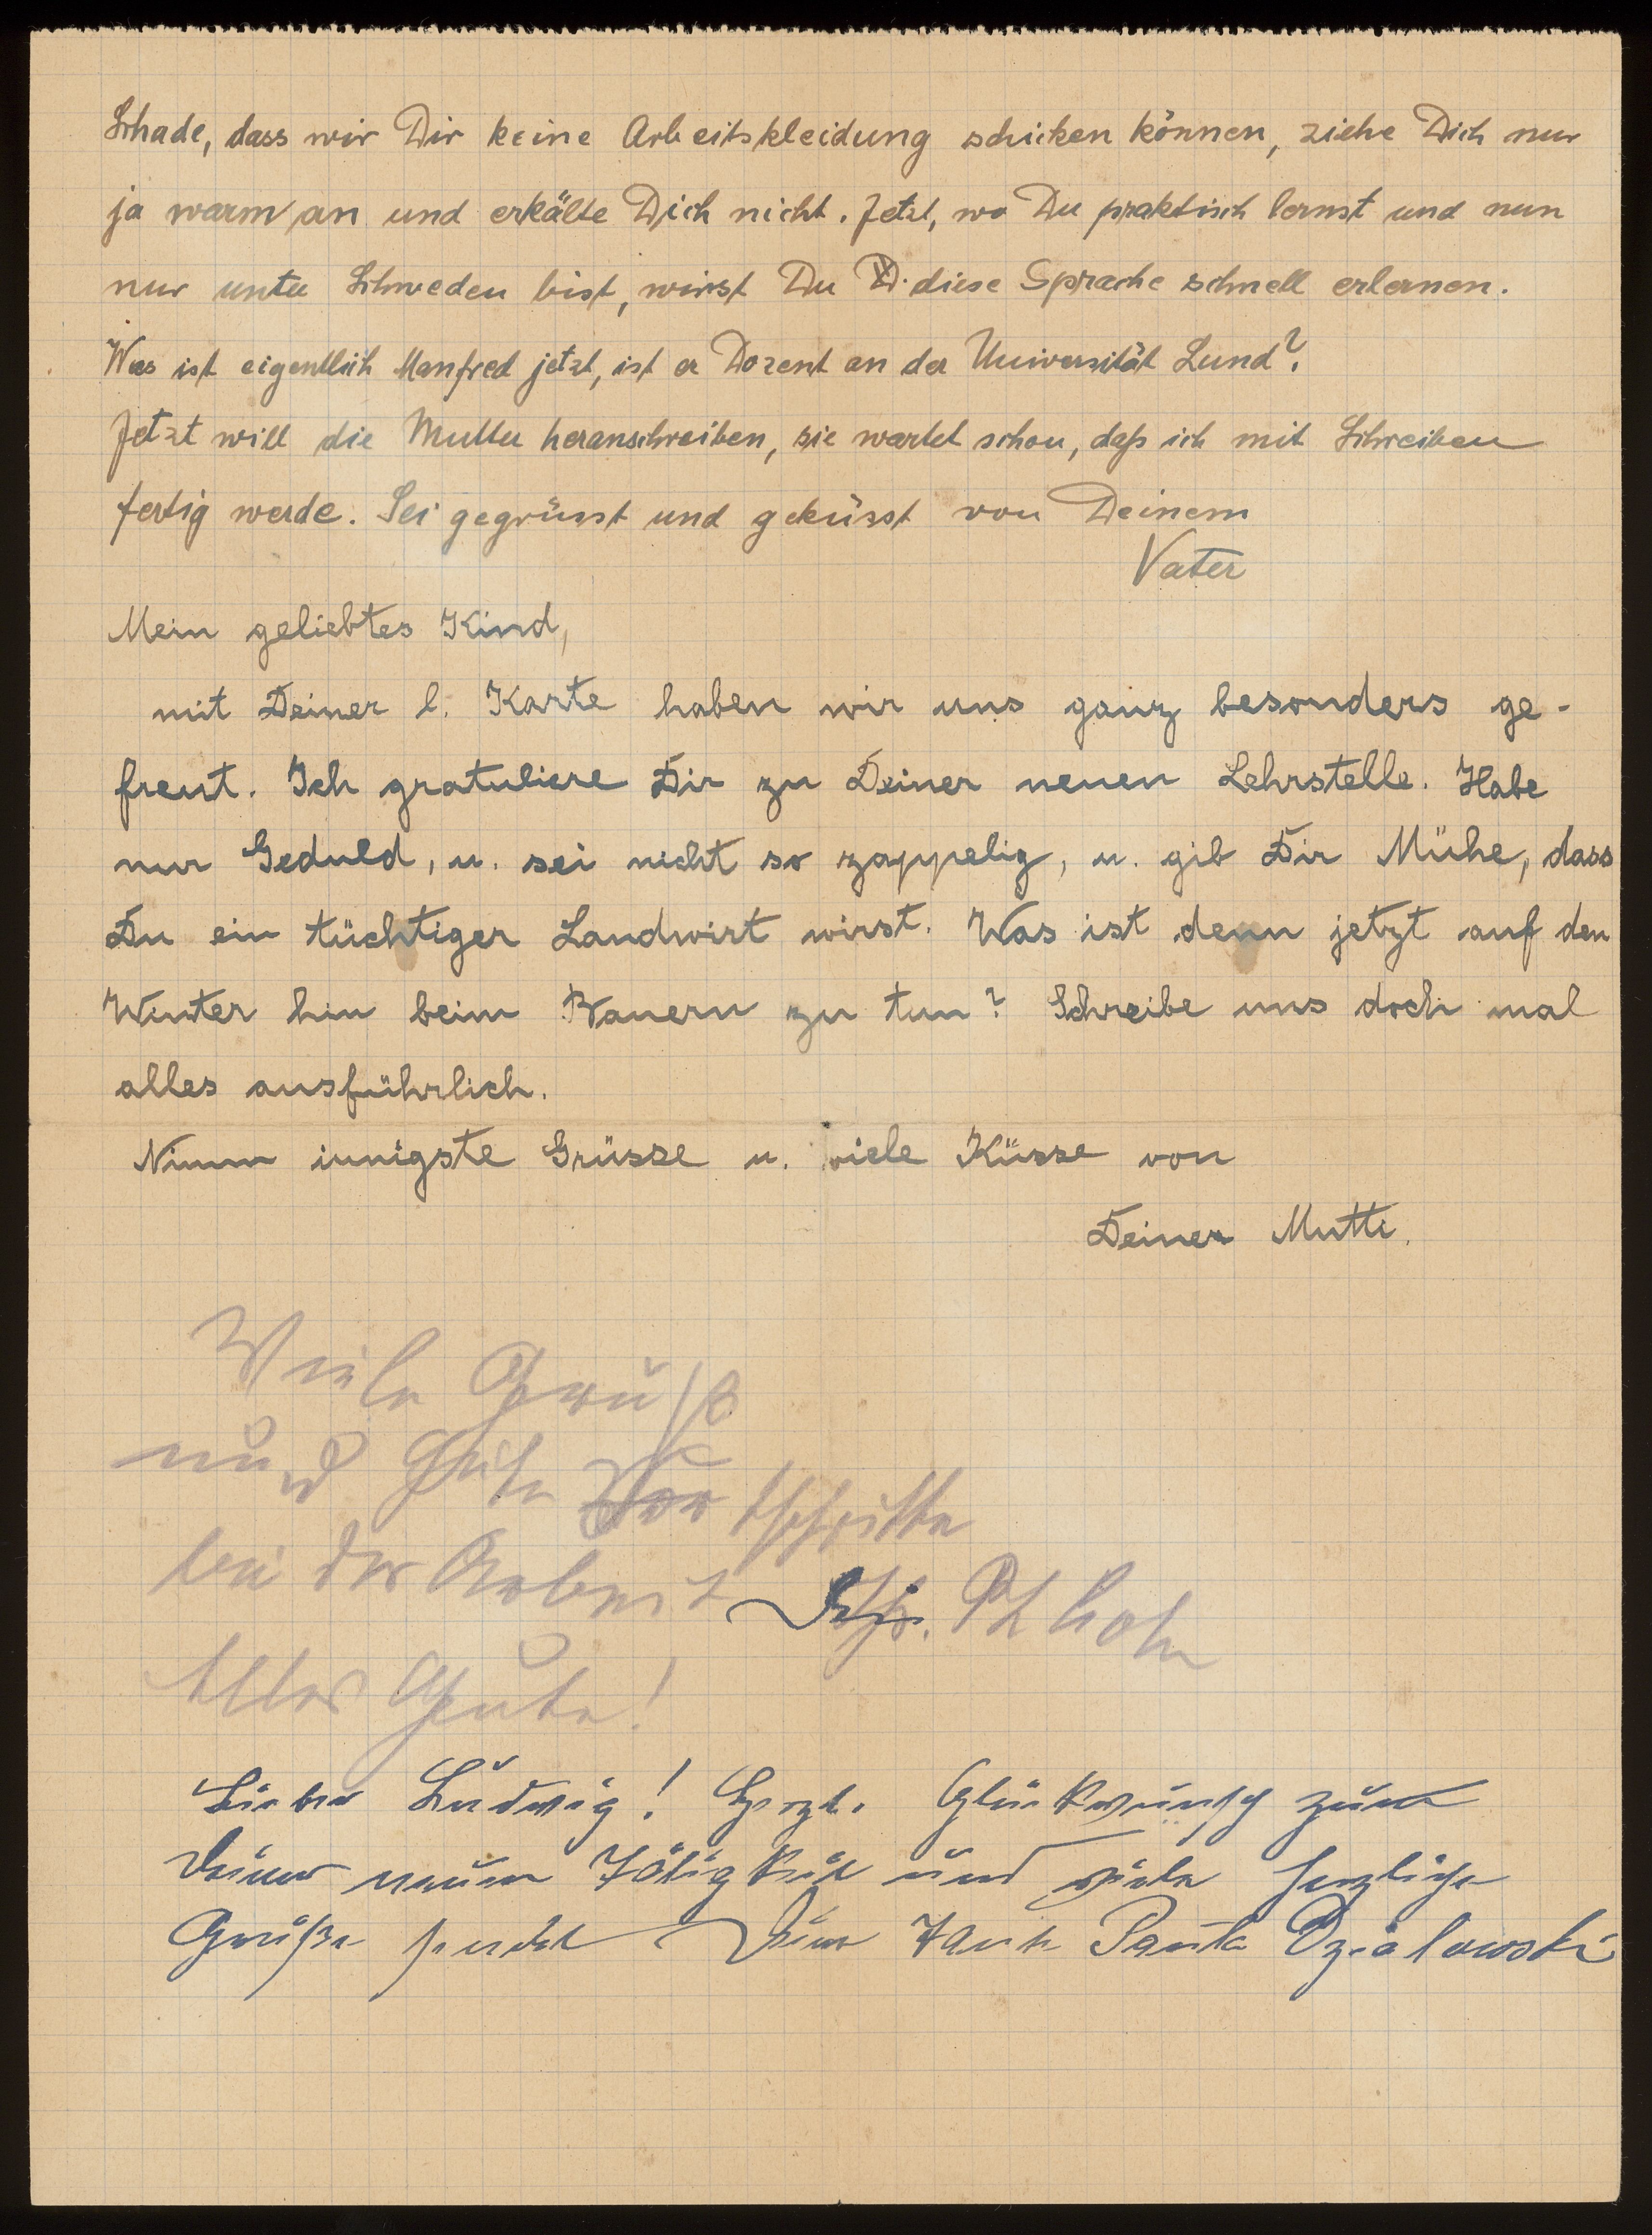 Schade, dass wir Dir keine Arbeitskleidung schicken können, ziehe Dich nur
ja warm an und erkälte Dich nicht. Jetzt, wo Du praktisch lernst und nun
nur unter Schweden bist, wirst Du diese Sprache schnell erlernen.
Was ist eigentlich Manfred jetzt, ist er Dozent an der Universität Lund?
Jetzt will die Mutter heranschreiben, sie wartet schon, daß ich mit Schreiben
fertig werde. Sei gegrüsst und geküsst von Deinem
Vater
Mein geliebtes Kind,
mit Deiner l. Karte haben wir uns ganz besonders ge-
freut. Ich gratuliere Dir zu Deiner neuen Lehrstelle. Habe
nur Geduld, u. sei nicht so zappelig, u. gib Dir Mühe, dass
Du ein tüchtiger Landwirt wirst. Was ist denn jetzt auf den
Winter hin beim Bauern zu tun? Schreibe uns doch mal
alles ausführlich.
Nimm innigste Grüsse u. viele Küsse von
Deiner Mutti.
Viele Grüße
und gute Fortschritte
bei der Arbeit
Alles Gute!
Lieber Ludwig! Herzl. Glückwunsch zum
Deiner neuen Tätigkeit und viele herzliche
Grüße sendet Deine Tante Paula Dzialowski